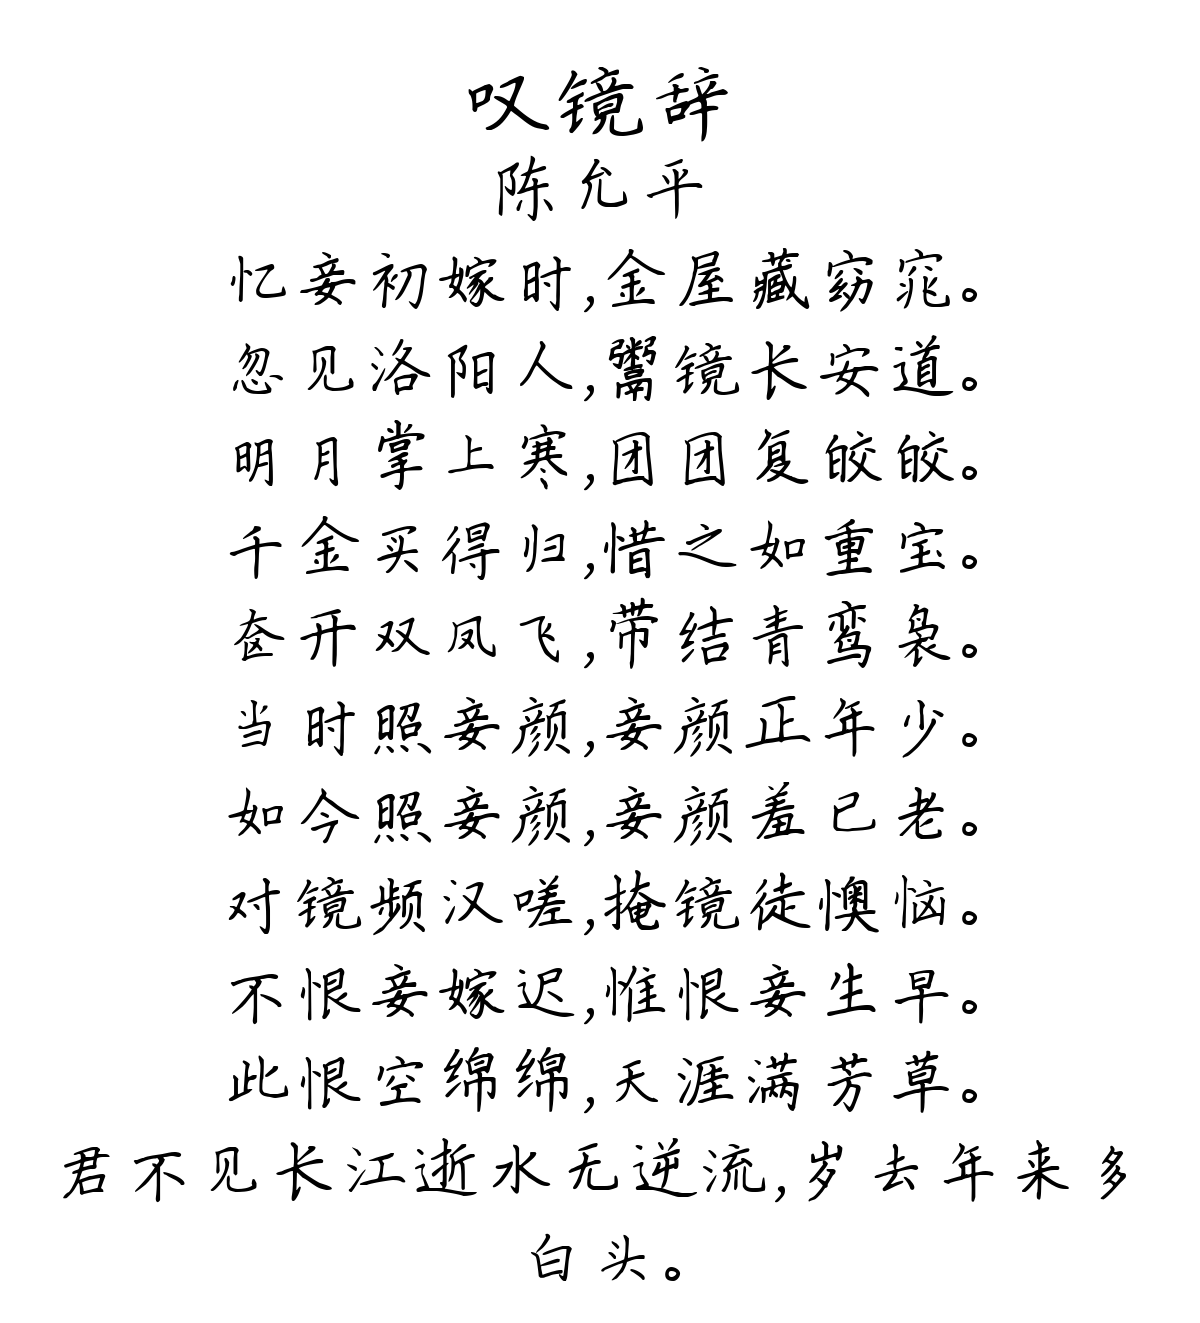 叹镜辞
陈允平
忆妾初嫁时,金屋藏窈窕。
忽见洛阳人,鬻镜长安道。
明月掌上寒,团团复皎皎。
千金买得归,惜之如重宝。
奁开双凤飞,带结青鸾袅。
当时照妾颜,妾颜正年少。
如今照妾颜,妾颜羞已老。
对镜频汉嗟,掩镜徒懊恼。
不恨妾嫁迟,惟恨妾生早。
此恨空绵绵,天涯满芳草。
君不见长江逝水无逆流,岁去年来多
白头。